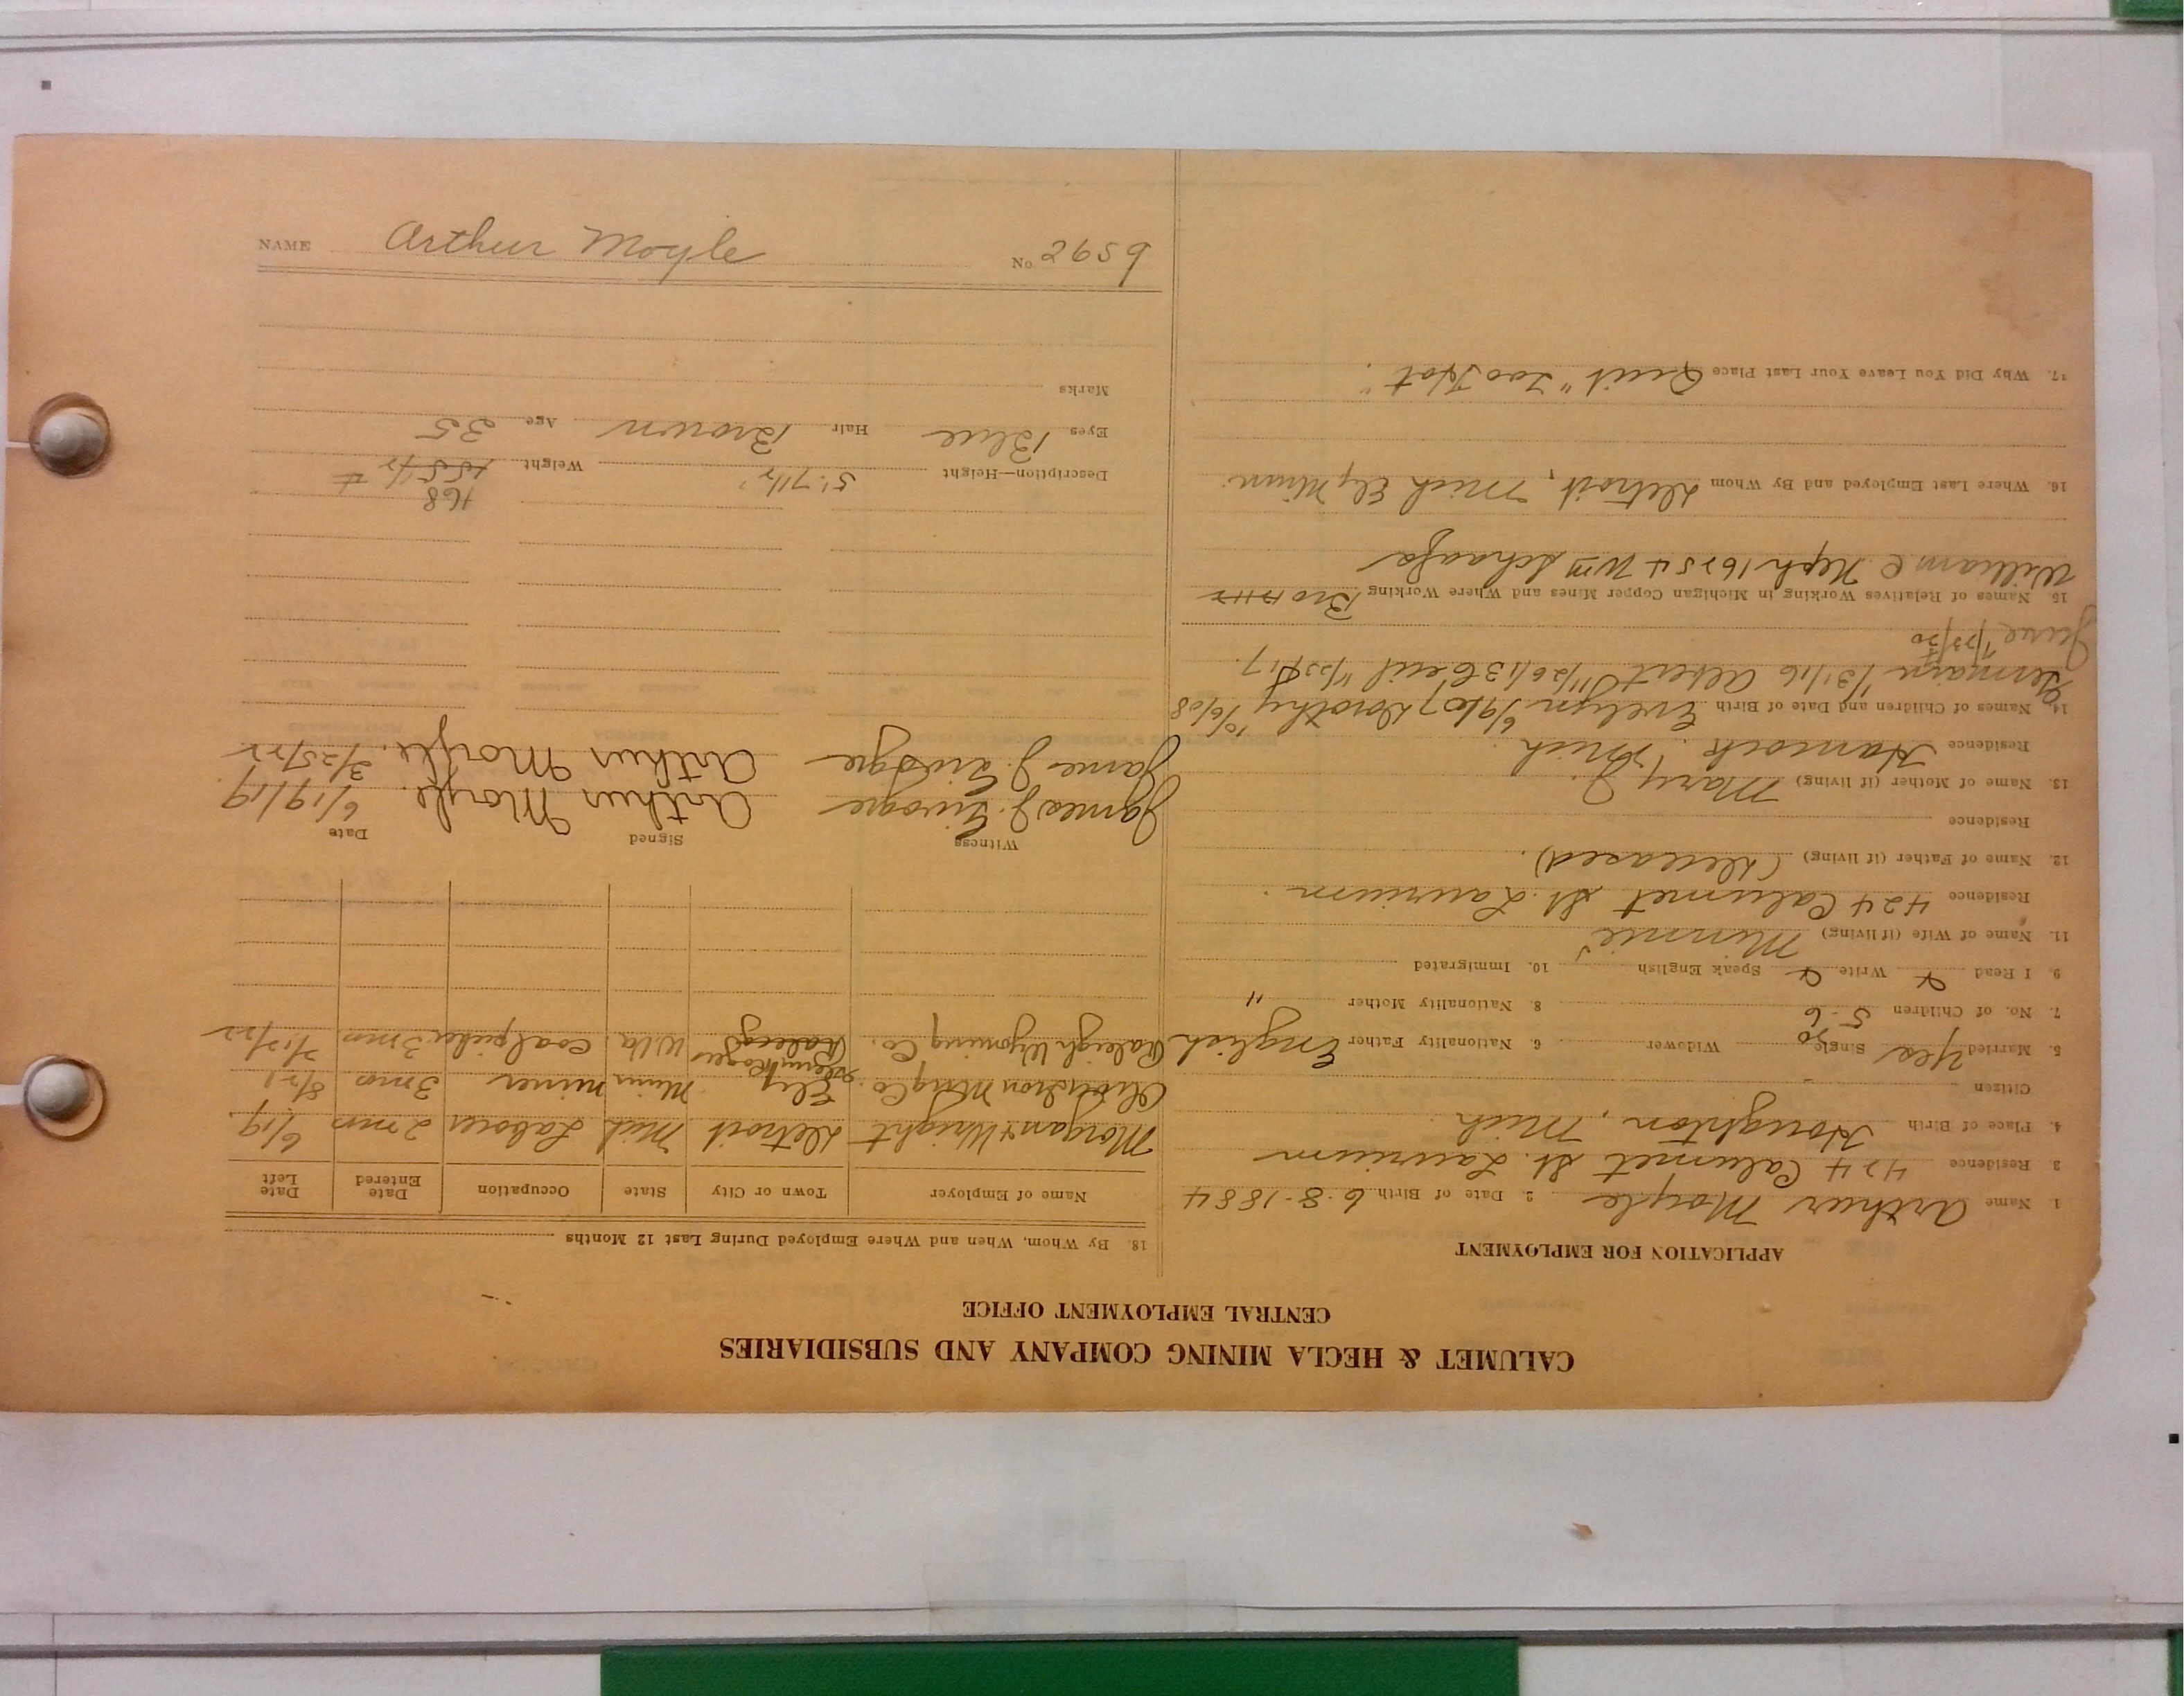 CALUMET & HECLA MINING COMPANY AND SUBSIDIARIES
CENTRAL EMPLOYMENT OFFICE
APPLICATION FOR EMPLOYMENT
1. Name Arthur Moyle 2. Date of Birth 6-8-1884
3. Residence 424 Calumet St. Laurium
4. Place of Birth Houghton, Mich
Citizen
5. Married Yes Single no Widower 6. Nationality Father English
7. No. of Children 5-6 8. Nationality Mother "
9. I Read Write Speak English 10. Immigrated
11. Name of Wife (if living) Minnie
Residence 424 Calumet St. Laurium.
12. Name of Father (if living) (Deceased).
Residence
13. Name of Mother (if living) Mary J.
Residence Hancock, Mich.
14. Names of Children and Date of Birth Evelyn 6/9/07 Dorothy 10/6/08
Germain 1/31/16 Albert 11/26/13 Cecil 11/23/17.
June 7/23/20
15. Names of Relatives Working in Michigan Copper Mines and Where Working
William C. Neph 16254 Wm Schaafs
16. Where Last Employed and By Whom Detroit, Mich Ely Minn.
17. Why Did You Leave Your Last Place Quit "Too Hot".
18. By Whom, When and Where Employed During Last 12 Months
Name of Employer Town or City State Occupation Date Entered Date Left
Morgan & Wright Detroit Mich Laborer 2 mos 6/19
Mng Co. Ely Minn miner 3 mos 8/21
Raleigh Wyoming Co. Raleigh W.Va. coal picker 3 mos 2/12/22
Witness Signed Date
James J. Arthur Moyle. 6/19/19
James J. Arthur Moyle. 3/25/22
168
Description—Height 5'. 7 1/2" Weight 155 1/2 #
Eyes Blue Hair Brown Age 35
Marks
NAME Arthur Moyle No. 2659